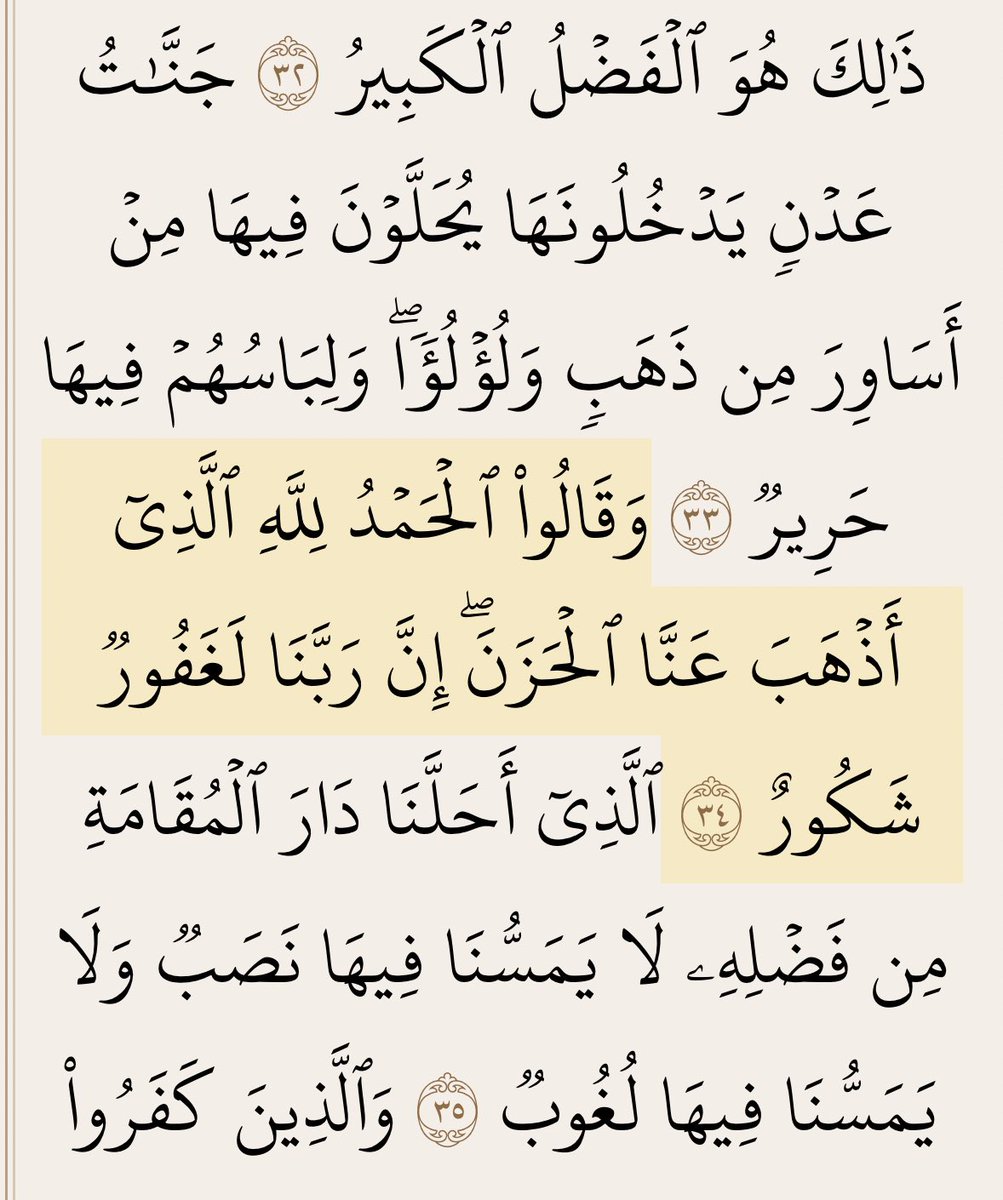 ذَٰلِكَ هُوَ ٱلْفَضْلُ ٱلْكَبِيرُ ٣٢ جَنَّـٰتُ
عَدْنٍ يَدْخُلُونَهَا يُحَلَّوْنَ فِيهَا مِنْ
أَسَاوِرَ مِن ذَهَبٍ وَلُؤْلُؤًا ۖ وَلِبَاسُهُمْ فِيهَا
حَرِيرٌ ٣٣ وَقَالُوا۟ ٱلْحَمْدُ لِلَّهِ ٱلَّذِىٓ
أَذْهَبَ عَنَّا ٱلْحَزَنَ ۖ إِنَّ رَبَّنَا لَغَفُورٌ
شَكُورٌ ٣٤ ٱلَّذِىٓ أَحَلَّنَا دَارَ ٱلْمُقَامَةِ
مِن فَضْلِهِۦ لَا يَمَسُّنَا فِيهَا نَصَبٌ وَلَا
يَمَسُّنَا فِيهَا لُغُوبٌ ٣٥ وَٱلَّذِينَ كَفَرُوا۟